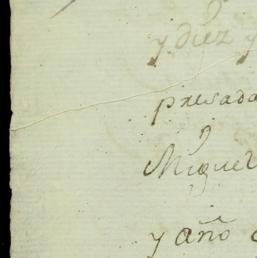 y diez y
presada
Miguel
y año